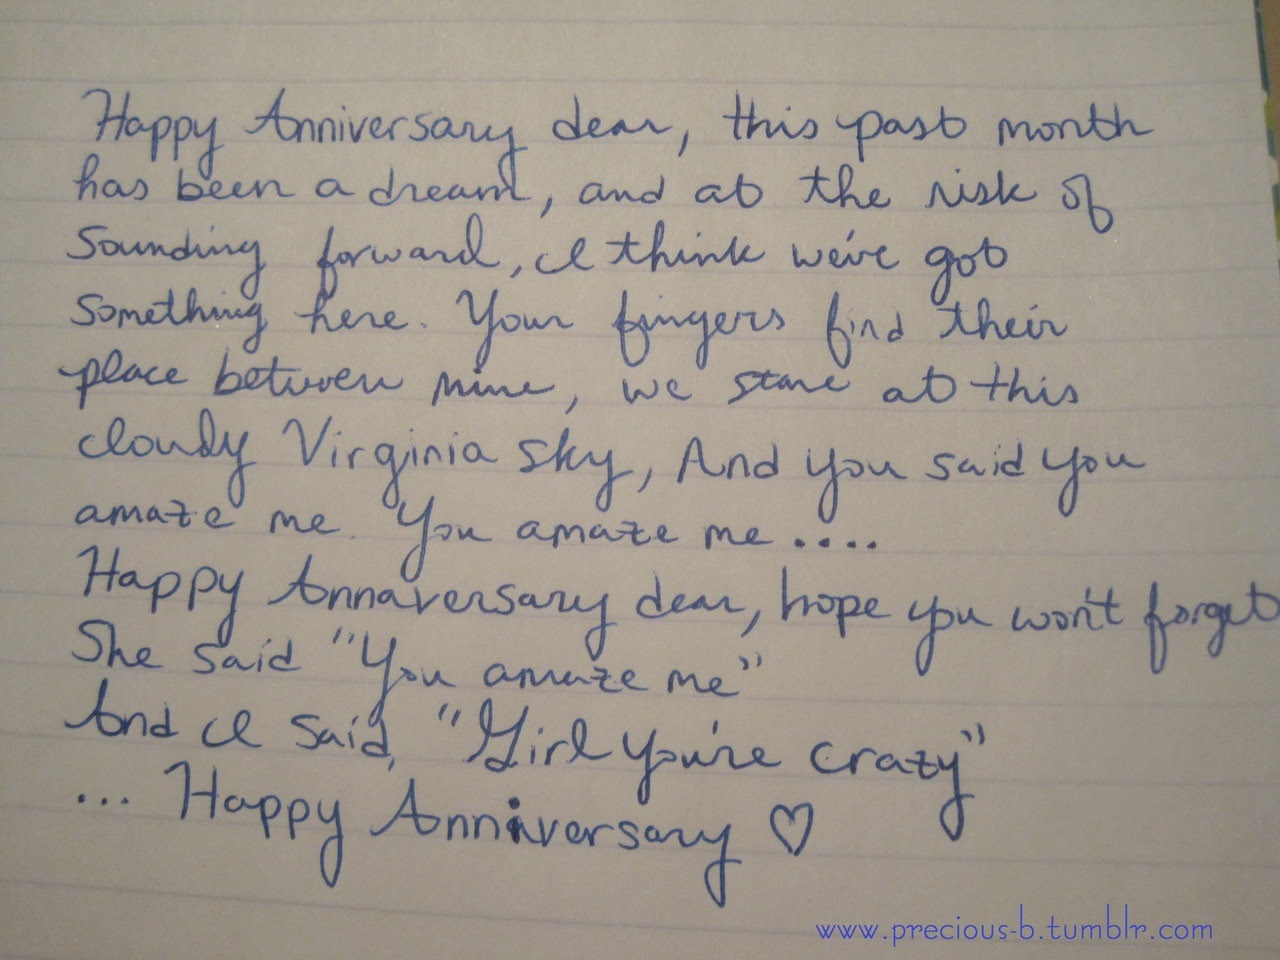 Happy Anniversary dear, this past month
has been a dream, and at the risk of
sounding forward, I think we've got
something here. Your fingers find their
place between mine, we stare at this
cloudy Virginia sky, And you said you
amaze me. You amaze me....
Happy Annaversary dear, hope you won't forget
She said "You amaze me"
And I said, "Girl you're crazy"
... Happy Anniversary ♡
www.precious-b.tumblr.com